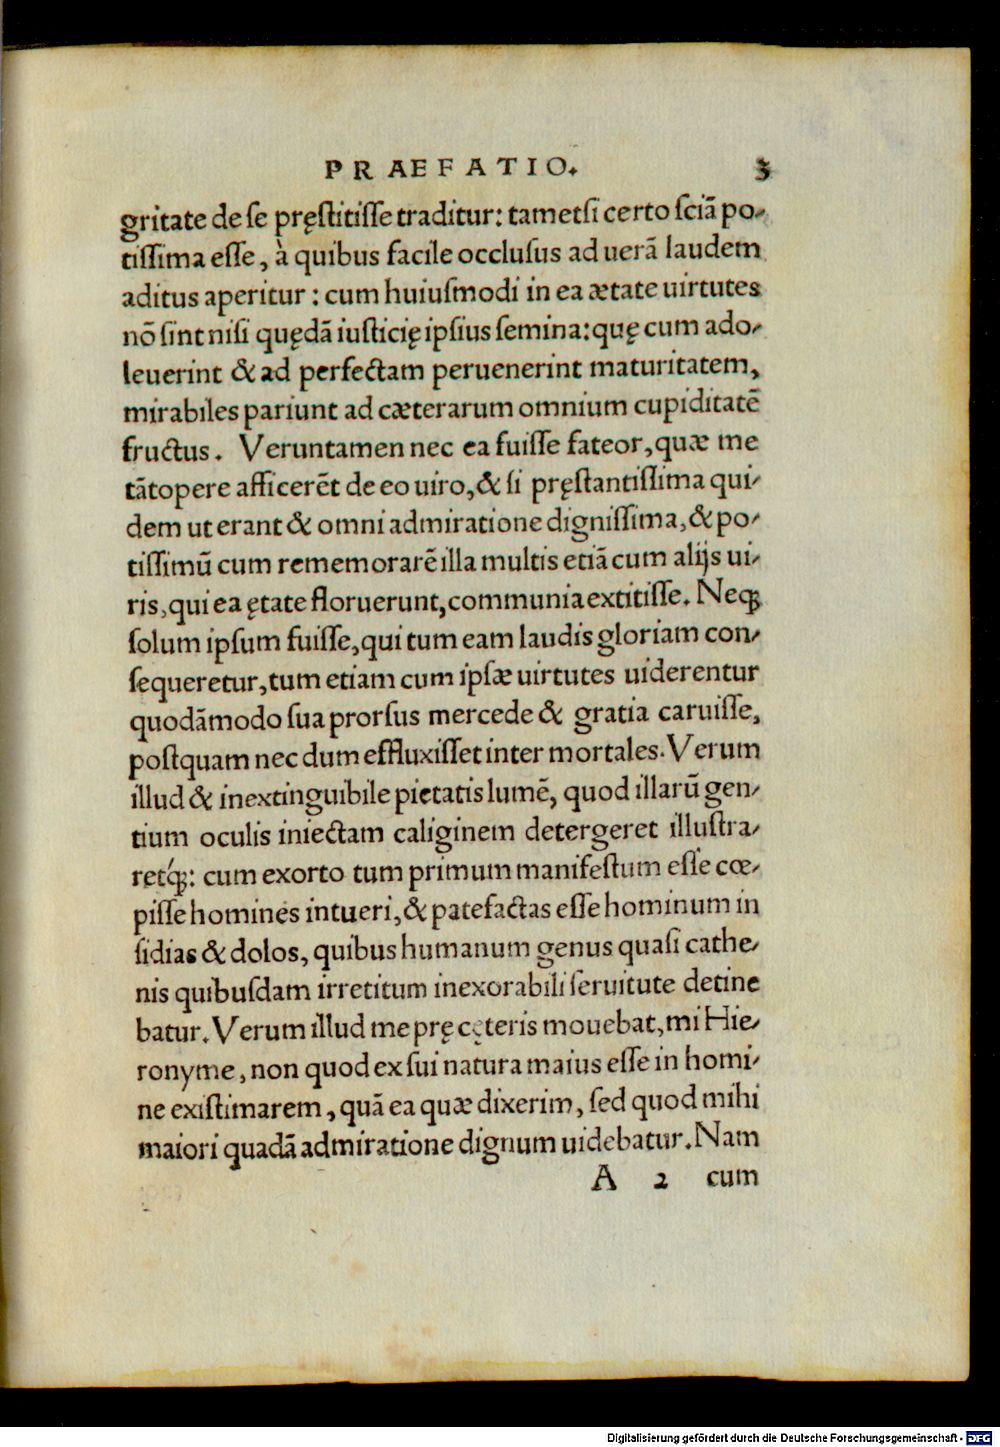 PRAEFATIO. 3
gritate de se pręſtitiſſe traditur: tametſi certo ſciā po-
tiſſima eſſe, à quibus facile occluſus ad uerā laudem
aditus aperitur: cum huiuſmodi in ea ætate uirtutes
nō ſint niſi quędā iuſticię ipſius ſemina: quę cum ado-
leuerint & ad perfectam peruenerint maturitatem,
mirabiles pariunt ad cæterarum omnium cupiditatē
fructus. Veruntamen nec ea fuiſſe fateor, quæ me
tātopere afficerēt de eo uiro, & ſi pręſtantiſſima qui-
dem ut erant & omni admiratione digniſſima, & po-
tiſſimū cum rememorarē illa multis etiā cum alijs ui-
ris, qui ea ętate floruerunt, communia extitiſſe. Neqꝫ
ſolum ipſum fuiſſe, qui tum eam laudis gloriam con-
ſequeretur, tum etiam cum ipſæ uirtutes uiderentur
quodāmodo ſua prorſus mercede & gratia caruiſſe,
poſtquam nec dum effluxiſſet inter mortales. Verum
illud & inextinguibile pietatis lumē, quod illarū gen-
tium oculis iniectam caliginem detergeret illuſtra-
retqꝫ́: cum exorto tum primum manifeſtum eſſe cœ-
piſſe homines intueri, & patefactas eſſe hominum in
ſidias & dolos, quibus humanum genus quaſi cathe-
nis quibuſdam irretitum inexorabili ſeruitute detine
batur. Verum illud me prę cęteris mouebat, mi Hie-
ronyme, non quod ex ſui natura maius eſſe in homi-
ne exiſtimarem, quā ea quæ dixerim, ſed quod mihi
maiori quadā admiratione dignum uidebatur. Nam
A 2 cum
Digitalisierung gefördert durch die Deutsche Forschungsgemeinschaft - DFG